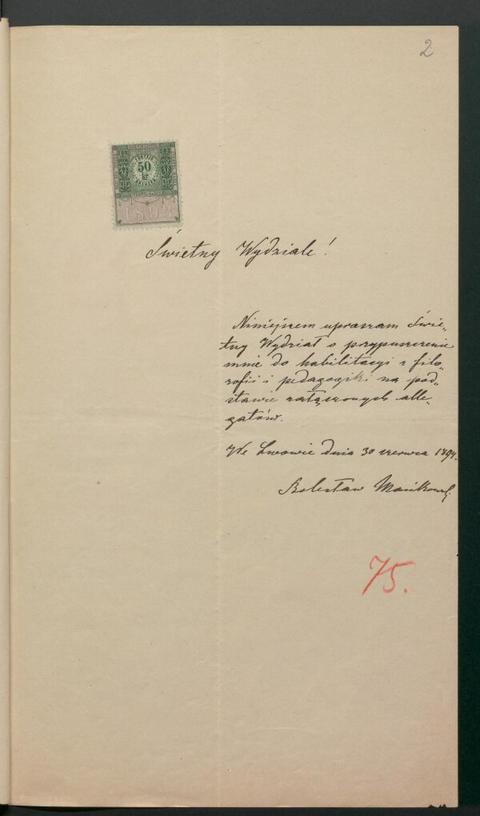 2
50
kr
Świetny Wydziale!
Niniejszem upraszam Świe-
tny Wydział o przypuszczenie
mnie do habilitacyi z filo-
zofii i pedagogiki na pod-
stawie załączonych alle-
gatów.
We Lwowie dnia 30 czerwca 1894.
Bolesław Mańkowski
75.